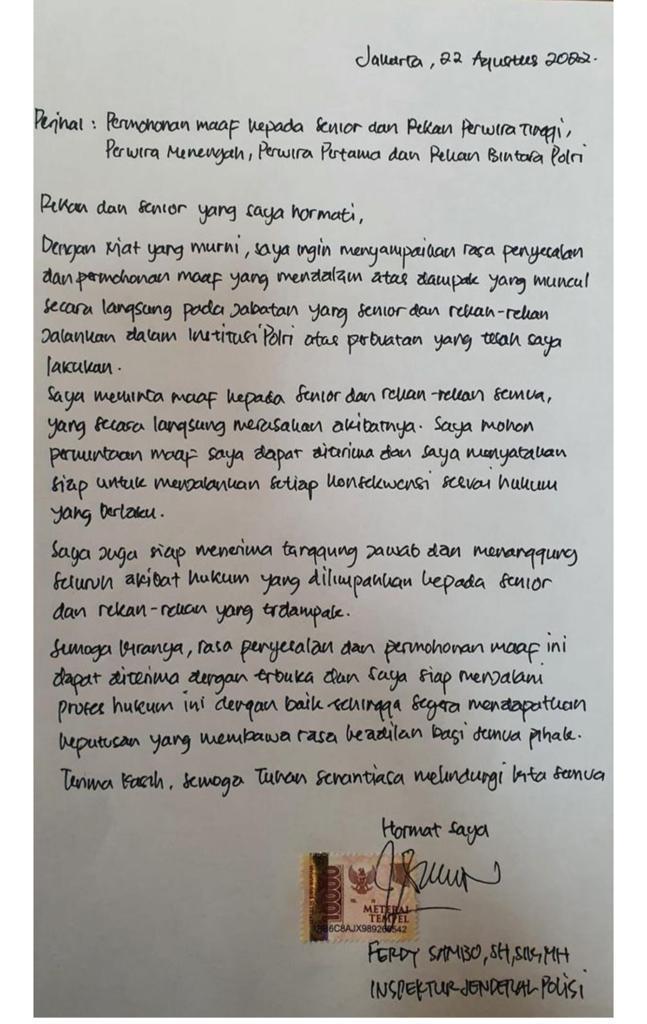 Jakarta, 22 Agustus 2022.
Perihal : Permohonan maaf kepada Senior dan Rekan Perwira Tinggi,
Perwira Menengah, Perwira Pertama dan Rekan Bintara Polri
Rekan dan senior yang saya hormati,
Dengan niat yang murni, saya ingin menyampaikan rasa penyesalan
dan permohonan maaf yang mendalam atas dampak yang muncul
secara langsung pada Jabatan yang senior dan rekan-rekan
Jalankan dalam Institusi Polri atas perbuatan yang telah saya
lakukan.
Saya meminta maaf kepada Senior dan rekan-rekan semua,
yang secara langsung merasakan akibatnya. Saya mohon
permintaan maaf saya dapat diterima dan saya menyatakan
siap untuk menjalankan setiap konsekwensi sesuai hukum
yang berlaku.
Saya Juga siap menerima tanggung Jawab dan menanggung
seluruh akibat hukum yang dilimpahkan kepada senior
dan rekan-rekan yang terdampak.
Semoga kiranya, rasa penyesalan dan permohonan maaf ini
dapat diterima dengan terbuka dan Saya siap menjalani
proses hukum ini dengan baik sehingga segera mendapatkan
keputusan yang membawa rasa keadilan bagi semua pihak.
Terima kasih, semoga Tuhan senantiasa melindungi kita semua
Hormat saya
10000
METERAI
TEMPEL
FERDY SAMBO, SH, SIK, MH
INSPEKTUR JENDERAL POLISI